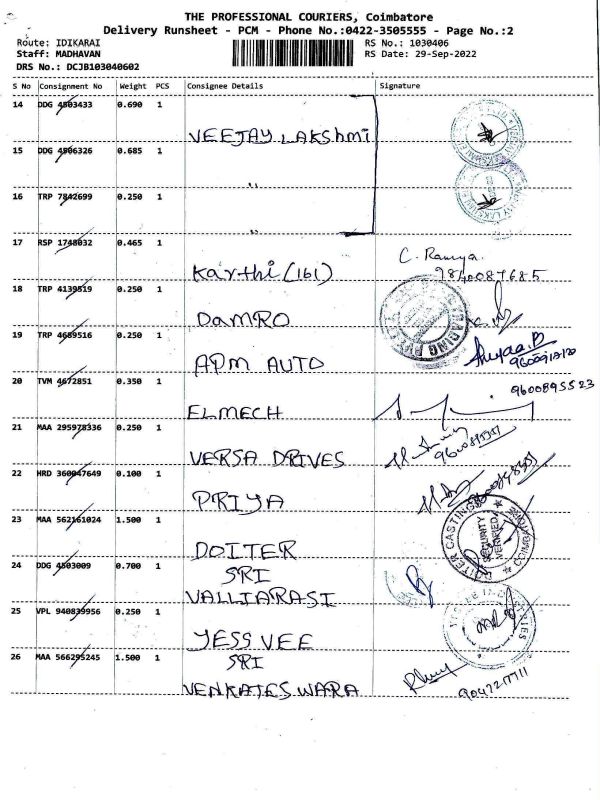 THE PROFESSIONAL COURIERS, Coimbatore
Delivery Runsheet - PCM - Phone No.:0422-3505555 - Page No.:2
Route: IDIKARAI RS No.: 1030406
Staff: MADHAVAN RS Date: 29-Sep-2022
DRS No.: DCJB103040602
S No Consignment No Weight PCS Consignee Details Signature
14 DDG 4503433 0.690 1
VEEJAY LAKSHMI
15 DDG 4506326 0.685 1
"
16 TRP 7842699 0.250 1
"
17 RSP 1748032 0.465 1 C. Ramya.
Karthi (161) 9840087685
18 TRP 4139519 0.250 1
DAMRO
19 TRP 4689516 0.250 1
APM AUTO
20 TVM 4672851 0.350 1 9600895523
ELMECH
21 MAA 295978336 0.250 1
VERSA DRIVES
22 HRD 360047649 0.100 1
PRIYA
23 MAA 562161024 1.500 1 DOITER CASTINGS COIMBATORE SECURITY VERIFIED
DOITER
24 DDG 4503009 0.700 1
SRI
VALLIARASI
25 VPL 940839956 0.250 1
YESS VEE
26 MAA 566295245 1.500 1
SRI
VENKATESWARA